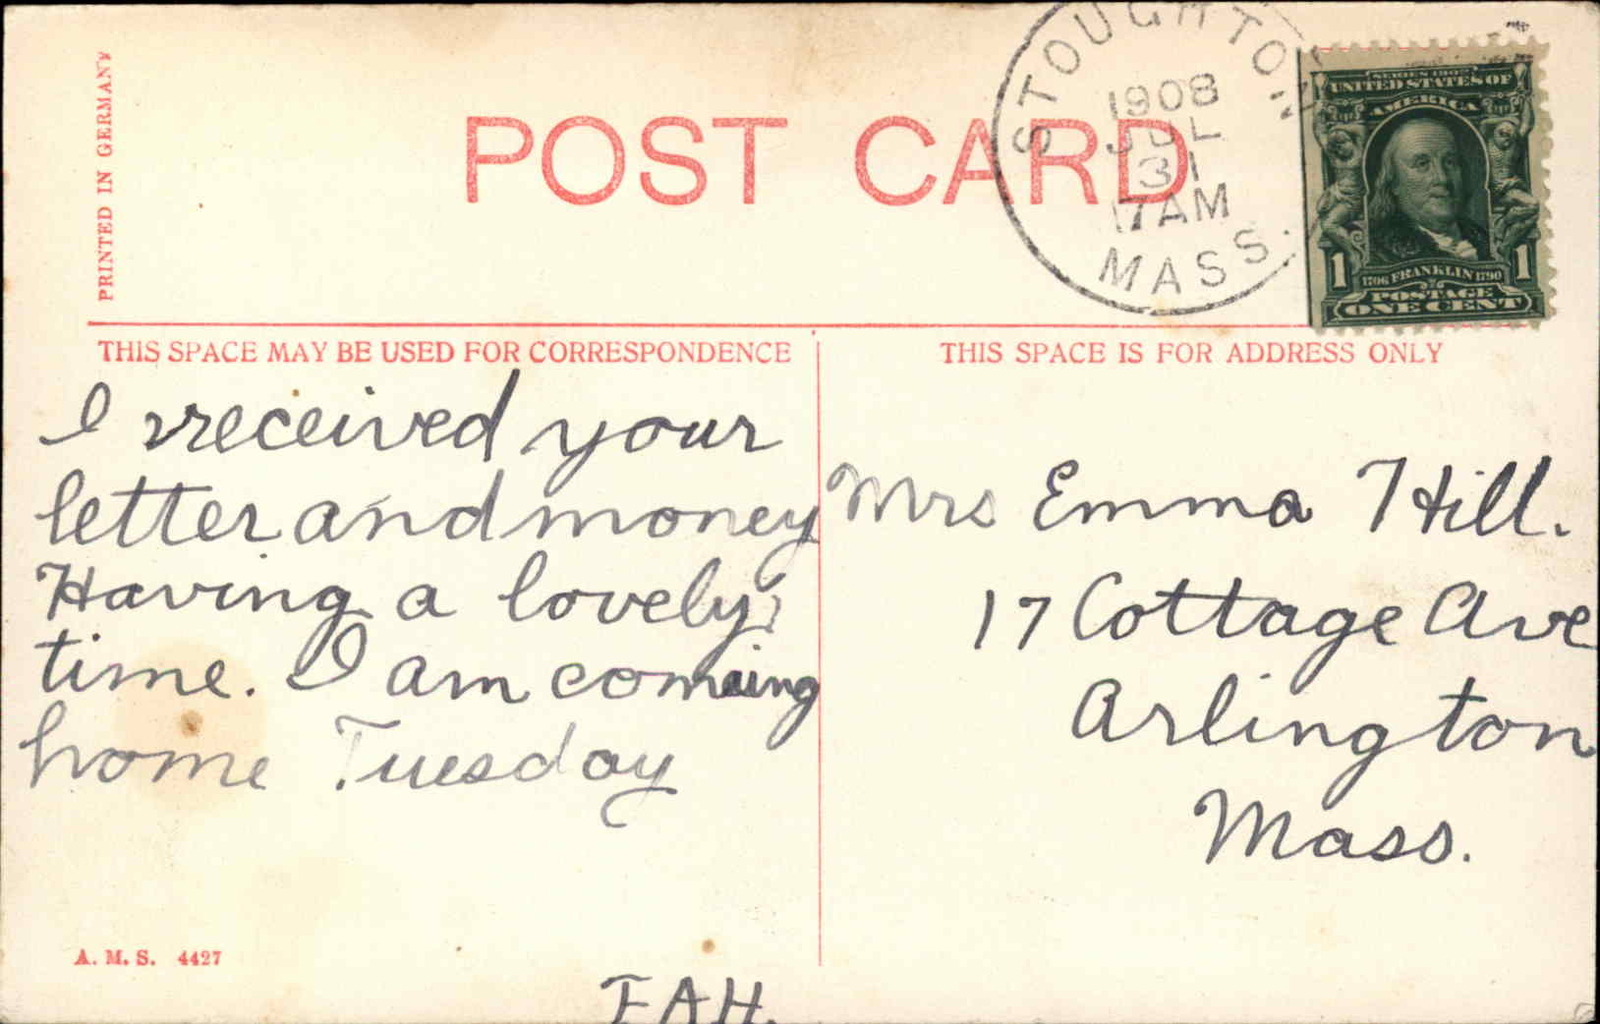 PRINTED IN GERMANY
POST CARD
STOUGHTON
1908
JUL
31
7AM
MASS.
SERIES 1902
UNITED STATES OF
AMERICA
1 1706 FRANKLIN 1790 1
POSTAGE
ONE CENT
THIS SPACE MAY BE USED FOR CORRESPONDENCE
I received your
letter and money
Having a lovely
time. I am coming
home Tuesday
THIS SPACE IS FOR ADDRESS ONLY
Mrs Emma Hill.
17 Cottage Ave
Arlington
Mass.
A. M. S. 4427